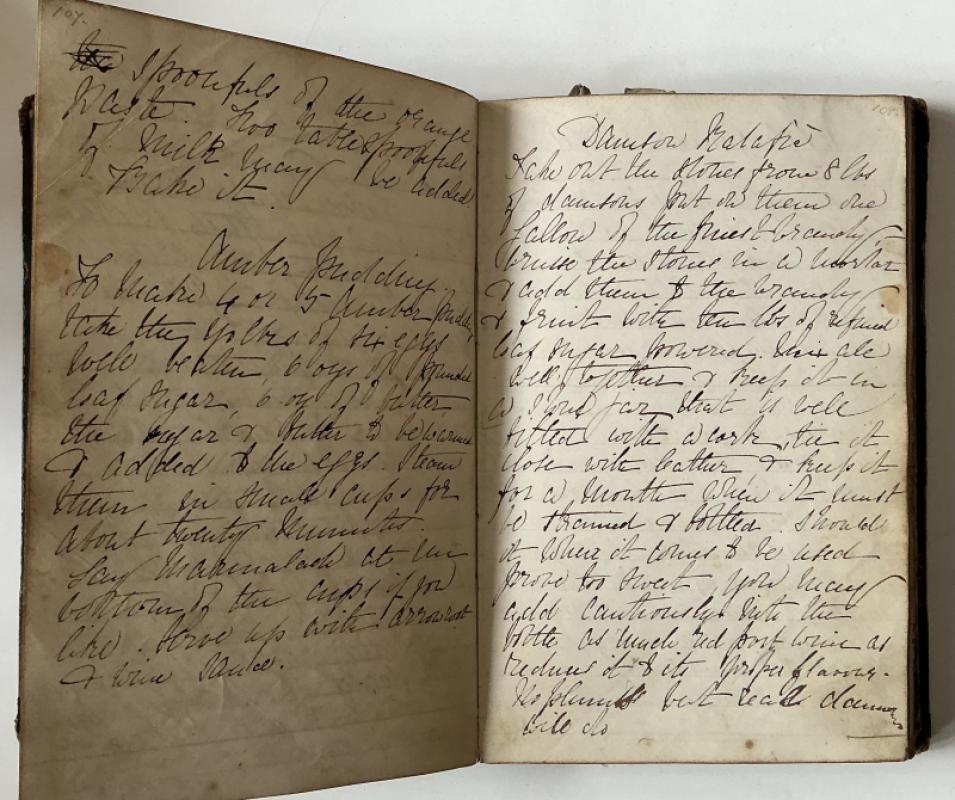 107.
spoonfuls of the orange
Paste. Two tablespoonfuls
of milk may be added.
Bake it.
Amber Pudding.
To make 4 or 5 Amber Pudds
take the yolks of six eggs
well beaten, 6 ozs of pounded
loaf sugar, 6 oz of butter
the sugar & butter to be warmed
& added to the eggs. Steam
them in small cups for
about twenty minutes.
Lay Marmalade at the
bottom of the cups if you
like. Serve up with arrowroot
& wine sauce.
108.
Damson Ratafie
Take out the stones from 8 lbs
of damsons put on them one
Gallon of the finest brandy,
bruise the stones in a mortar
& add them to the brandy
& fruit with ten lbs of refined
loaf sugar powered. Mix all
well together & keep it in
a stone jar that is well
fitted with a cork, tie it
close with leather & keep it
for a month when it must
be strained & bottled. Should
it when it comes to be used
prove too sweet you may
add cautiously into the
bottle as much red port wine as
reduces it to its proper flavour.
No plums but real damsons
will do